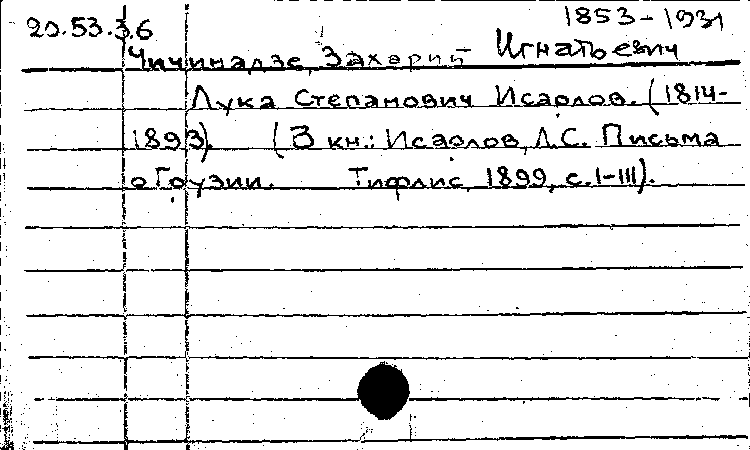 20.53.3.6 1853-1931
Чичинадзе, Захарий Игнатьевич
Лука Степанович Исарлов. (1814-
1893). (В кн.: Исарлов, Л.С. Письма
о Грузии. Тифлис, 1899, с. I-III).